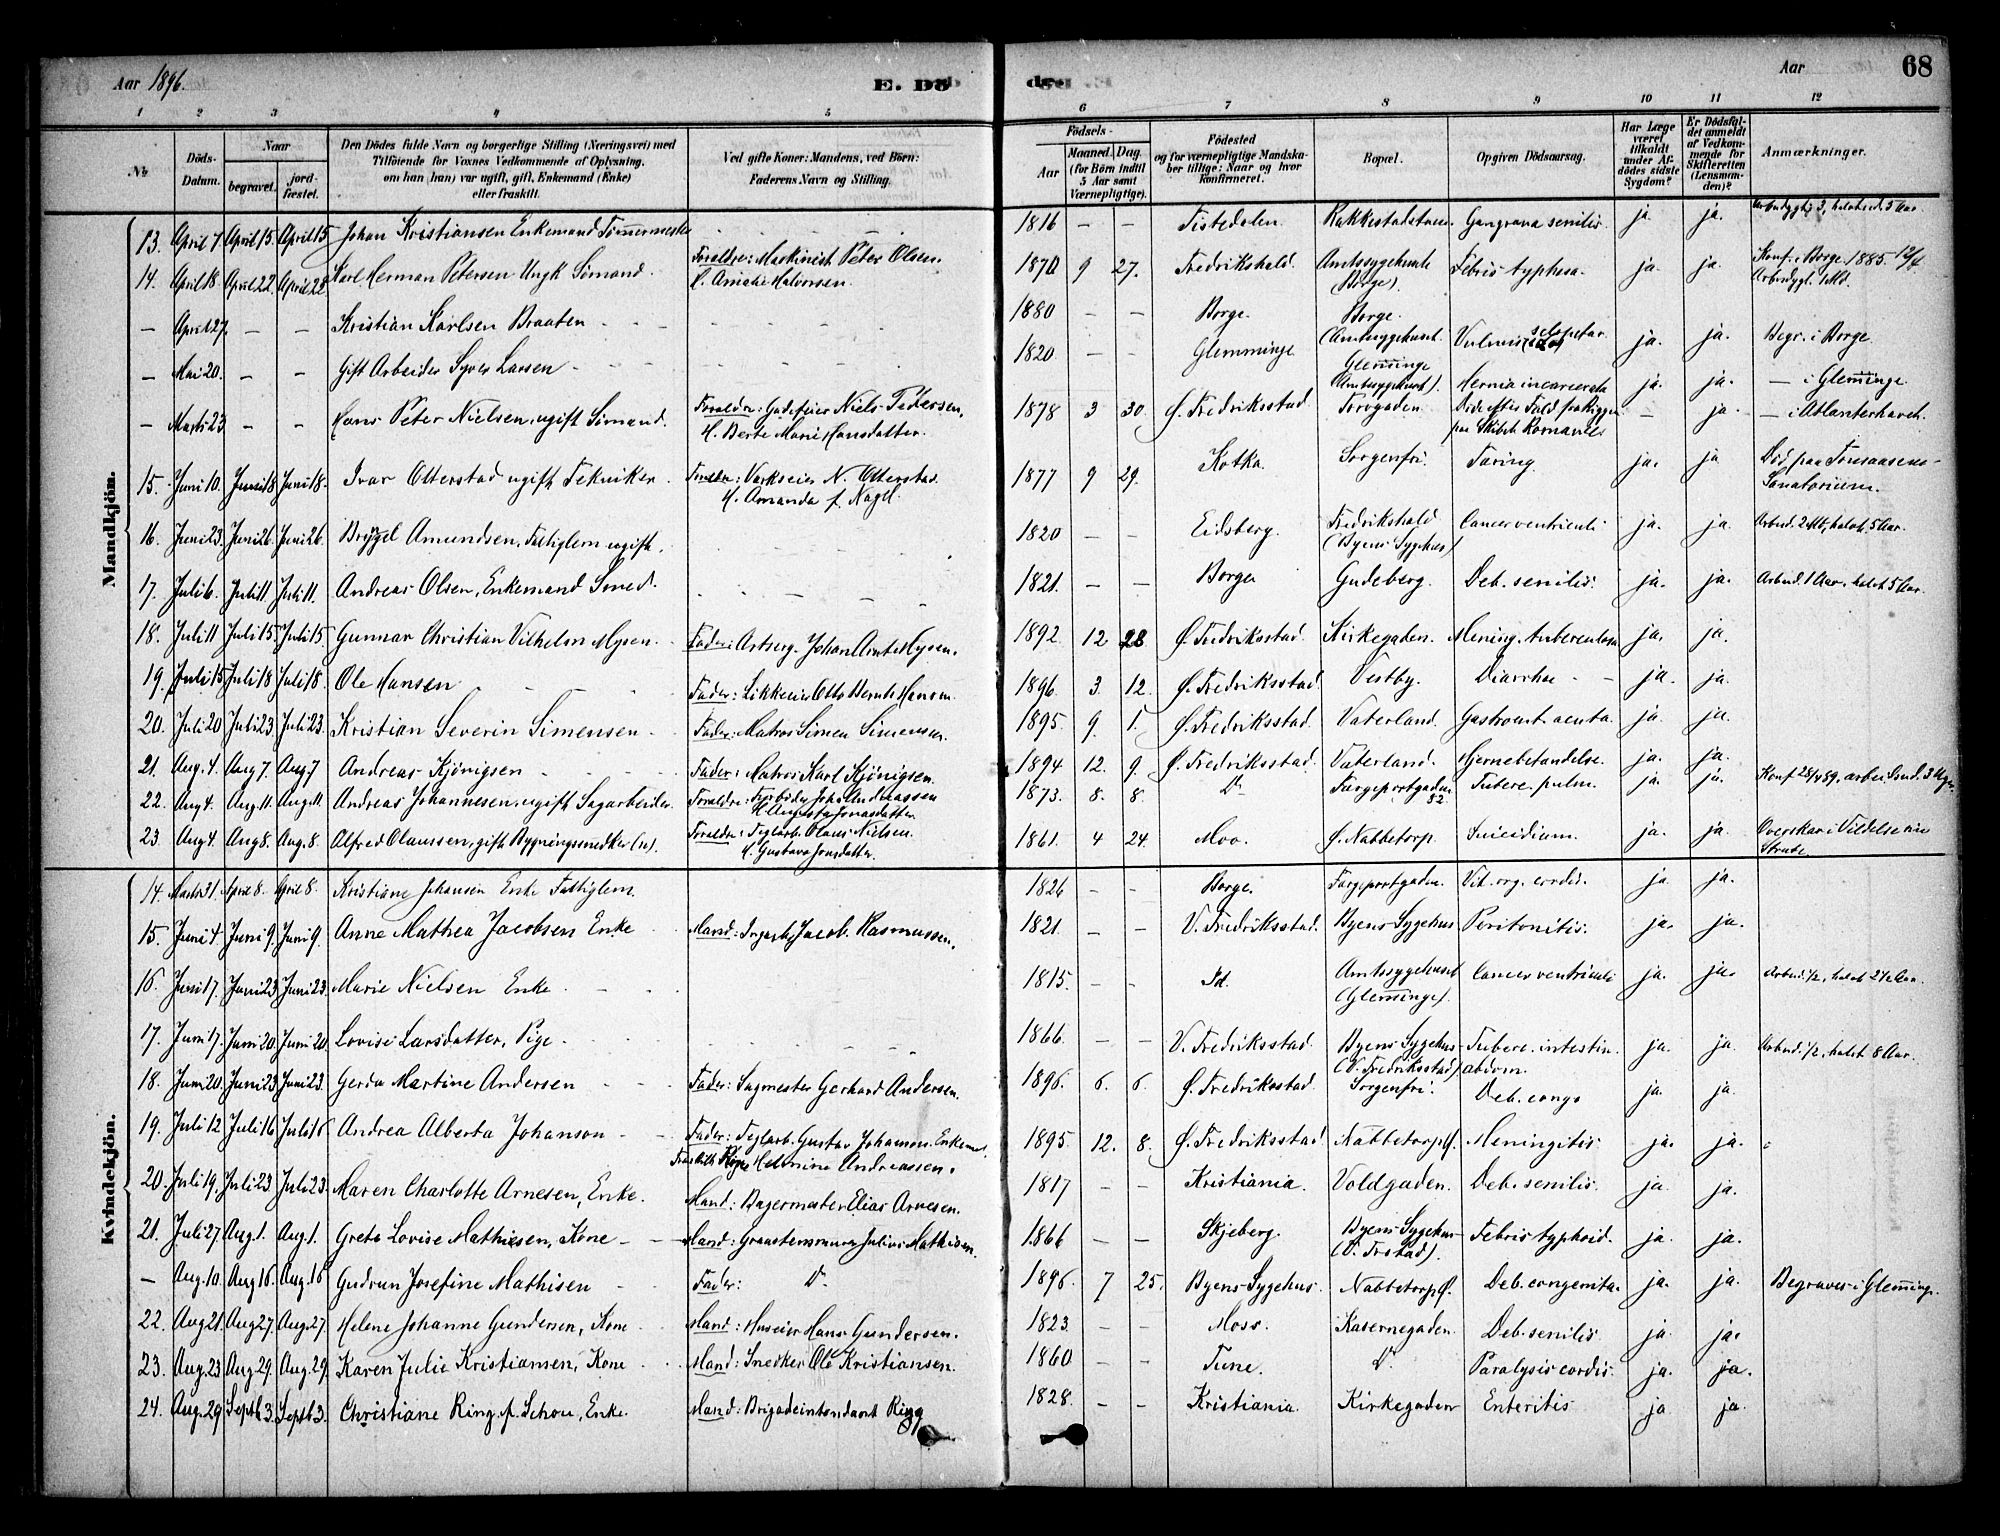 Aar 1896.
E. Dö
Aar
68
1 2 3 4 5 6 7 8 9 10 11 12
№
Döds-Datum.
Naar
begravet.
jordfæstet.
Den Dödes fulde Navn og borgerlige Stilling (Næringsvei) med
Tilföiende for Voxnes Vedkommende af Oplysning,
om han (hun) var ugift, gift, Enkemand (Enke)
eller fraskilt.
Ved gifte Koner: Mandens, ved Börn:
Faderens Navn og Stilling.
Födsels-
Aar
Maaned. Dag.
(for Börn indtil
5 Aar samt
Værnepligtige).
Födested
og for værnepligtige Mandskaber tillige: Naar og hvor
konfirmeret.
Bopæl.
Opgiven Dödsaarsag.
Har Læge
været
tilkaldt
under Afdödes sidste
Sygdom?
Er Dödsfaldet anmeldt
af Vedkommende for
Skifteretten
(Lensmanden)?
Anmærkninger.
Mandkjön.
13. April 7 April 15 April 15 Johan Kristiansen Enkemand Tömmermester 1816 — — Tistedalen Gangræna senilis. ja ja.
14. April 18. April 22 April 22 Karl Herman Petersen Ungk. Sömand. Foraldre: Maskinist Peter Olsen. H. Amalie Halvorsen. 1870 9 27. Fredrikshald. Amtssygehuset (Borge). Febris typhosa. ja. ja. Konf. i Borge 1885
— April 27 — — Kristian Karlsen Braaten 1880 — — Borge. Borge. (Amtssygehuset. ja. ja. Begr. i Borge
— Mai 20. — — Gift Arbeider Syver Larsen 1820 — — Glemminge Glemminge Amtssygehuset). Hernia incarcerata ja. ja. — i Glemminge
— Marts 23 — — Hans Peter Nielsen, ugift Sömand. Foraldre: Gadefeier Niels Pedersen, H. Berte Marie Hansdatter. 1878 3 30. Ø. Fredriksstad Torvgaden. Döde efter Fald fra Riggen paa Skibet — ja. — i Atlanterhavet.
15. Juni 10. Juni 18 Juni 18. Ivar Otterstad ugift Tekniker Foraldre: Varkseier N. Otterstad. H. Amanda f. Nagel. 1877 9 29. Kotka. Sorgenfri. Taring. ja. ja Död paa Tonsaasens Sanatorium.
16. Juni 23. Juni 26 Juni 26. Amundsen, Fattiglem ugift. 1820 — — Eidsberg. Fredrikshald (Byens Sygehus) Cancer ventriculi ja. ja.
17. Juli 6. Juli 11. Juli 11. Andreas Olsen, Enkemand Smed. 1821. — — Borge Gudeberg. Deb. senilis. ja. ja. Arbud. 1 Aar, halot 5 Aar.
18. Juli 11 Juli 15. Juli 15 Gunnar Christian Vilhelm Mysen. Fader: Johan Mysen. 1892 12 28 Ø. Fredriksstad. Kirkegaden. Mening. tuberculosa ja. ja.
19. Juli 15 Juli 18 Juli 18. Ole Hansen Fader: Otto Bernt Hansen. 1896 3. 12. Ø. Fredriksstad. Vestby. Diarrhoe ja. ja.
20. Juli 20 Juli 23. Juli 23. Kristian Severin Simensen Fader: Matros Simen Simensen. 1895. 9. 1. Ø. Fredriksstad. Vaterland. Gastroent. acuta. ja. ja.
21. Aug. 4. Aug 7. Aug. 7 Andreas Kjönigsen Fader: Matros Karl Kjönigsen. 1894 12. 9. Ø. Fredriksstad. Vaterland. Hjernebetandelse. ja. ja.
22. Aug 4. Aug. 11. Aug. 11. Andreas Johannesen, ugift Sagarbeider. 1873. 8. 8. Do Færgeportgaden 82. Tuberc. pulm. ja. ja.
23. Aug 4. Aug 8. Aug. 8 Alfred Olaussen, gift Bygningssnedker Foraldre: Teglarb. Olaus Nielsen. H. Gustava Jonsdatter. 1861. 4 24. Moo. Ø. Nabbetorp. Suicidium. ja. ja. Overskar i Vildelse sin Strube.
Kvindekjön.
14. Marts 31. April 8. April 8. Kristiane Johansen Enke Fattiglem. 1826 — — Borge. Færgeportgaden. Vit. org. cordis. ja. ja.
15. Juni 4. Juni 9. Juni 9. Anne Mathea Jacobsen Enke Mand: Jacob Rasmussen. 1821. — — V. Fredriksstad. Byens Sygehus Peritonitis. ja. ja.
16. Juni 17. Juni 23 Juni 23. Marie Nielsen Enke 1815. — — Id. Amtssygehuset (Glemminge). Cancer ventriculi ja. ja.
17. Juni 17. Juni 20. Juni 20. Lovise Larsdatter, Pige 1866. — — V. Fredriksstad. Byens Sygehus (V. Fredriksstad) Tuberc. intestin. abdom. ja. ja. Arbud. 1/2, halot 8 Aar.
18. Juni 20. Juni 23 Juni 23. Gerda Martine Andersen Fader: Sagmester Gerhard Andersen. 1896. 6. 6. Ø. Fredriksstad. Sorgenfri. Deb. congo ja. ja.
19. Juli 12 Juli 16 Juli 16 Andrea Alberta Johanson Fader: Teglarb. Gustav Johanson. Helmine Andreassen. 1895. 12. 8. Ø. Fredriksstad Nabbetorp Ø. Meningitis. ja. ja.
20. Juli 19. Juli 23 Juli 23 Maren Charlotte Arnesen, Enke. Mand: Bagermester Elias Arnesen. 1817 — — Kristiania. Voldgaden. Deb. senilis. ja. ja.
21. Juli 27. Aug. 1. Aug. 1. Grete Lovise Mathisen, Kone Mand: Graastensmurer Julius Mathisen. 1866 — — Skjeberg. Byens Sygehus (V. Frstad). Febris typhoid. ja. ja.
— Aug. 10. Aug 16. Aug. 16 Gudrun Josefine Mathisen Fader: Do 1896. 7 25. Byens Sygehus. Nabbetorp Ø. Deb. congenita. ja. ja. Begraves i Glemminge.
22. Aug 21. Aug 27. Aug. 27. Helene Johanne Gundersen, Kone Mand: Huseier Hans Gundersen. 1823. — — Moss. Kasernegaden. Deb. senilis. ja. ja.
23. Aug. 23 Aug. 29. Aug. 29 Karen Julie Kristiansen, Kone Mand: Snedker Ole Kristiansen. 1860 — — Tune. Do Paralysis cordis. ja. ja.
24. Aug. 29 Septb 3. Septb 3. Christiane Ring f. Schou, Enke. Mand: Brigadeintendant Ring 1828. — — Kristiania. Kirkegaden Enteritis ja ja.